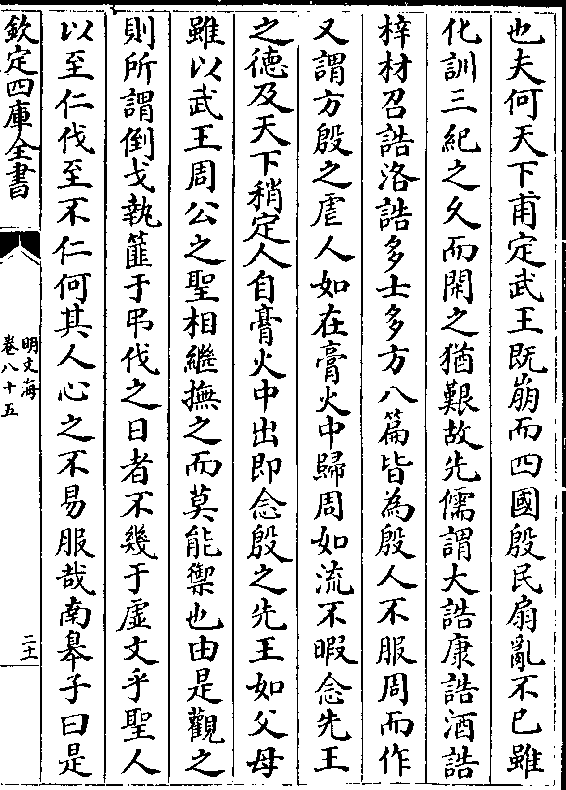 也夫何天下甫定武王既崩而四國殷民扇亂不已雖
化訓三紀之久而閑之猶艱故先儒謂大誥康誥酒誥
梓材召誥洛誥多士多方八篇皆為殷人不服周而作
又謂方殷之虐人如在膏火中歸周如流不暇念先王
之德及天下稍定人自膏火中出即念殷之先王如父母
雖以武王周公之聖相繼撫之而莫能禦也由是觀之
則所謂倒戈執篚于弔伐之日者不幾于虛文乎聖人
以至仁伐至不仁何其人心之不易服哉南皋子曰是
欽定四庫全書
明文海
卷八十五
二十一